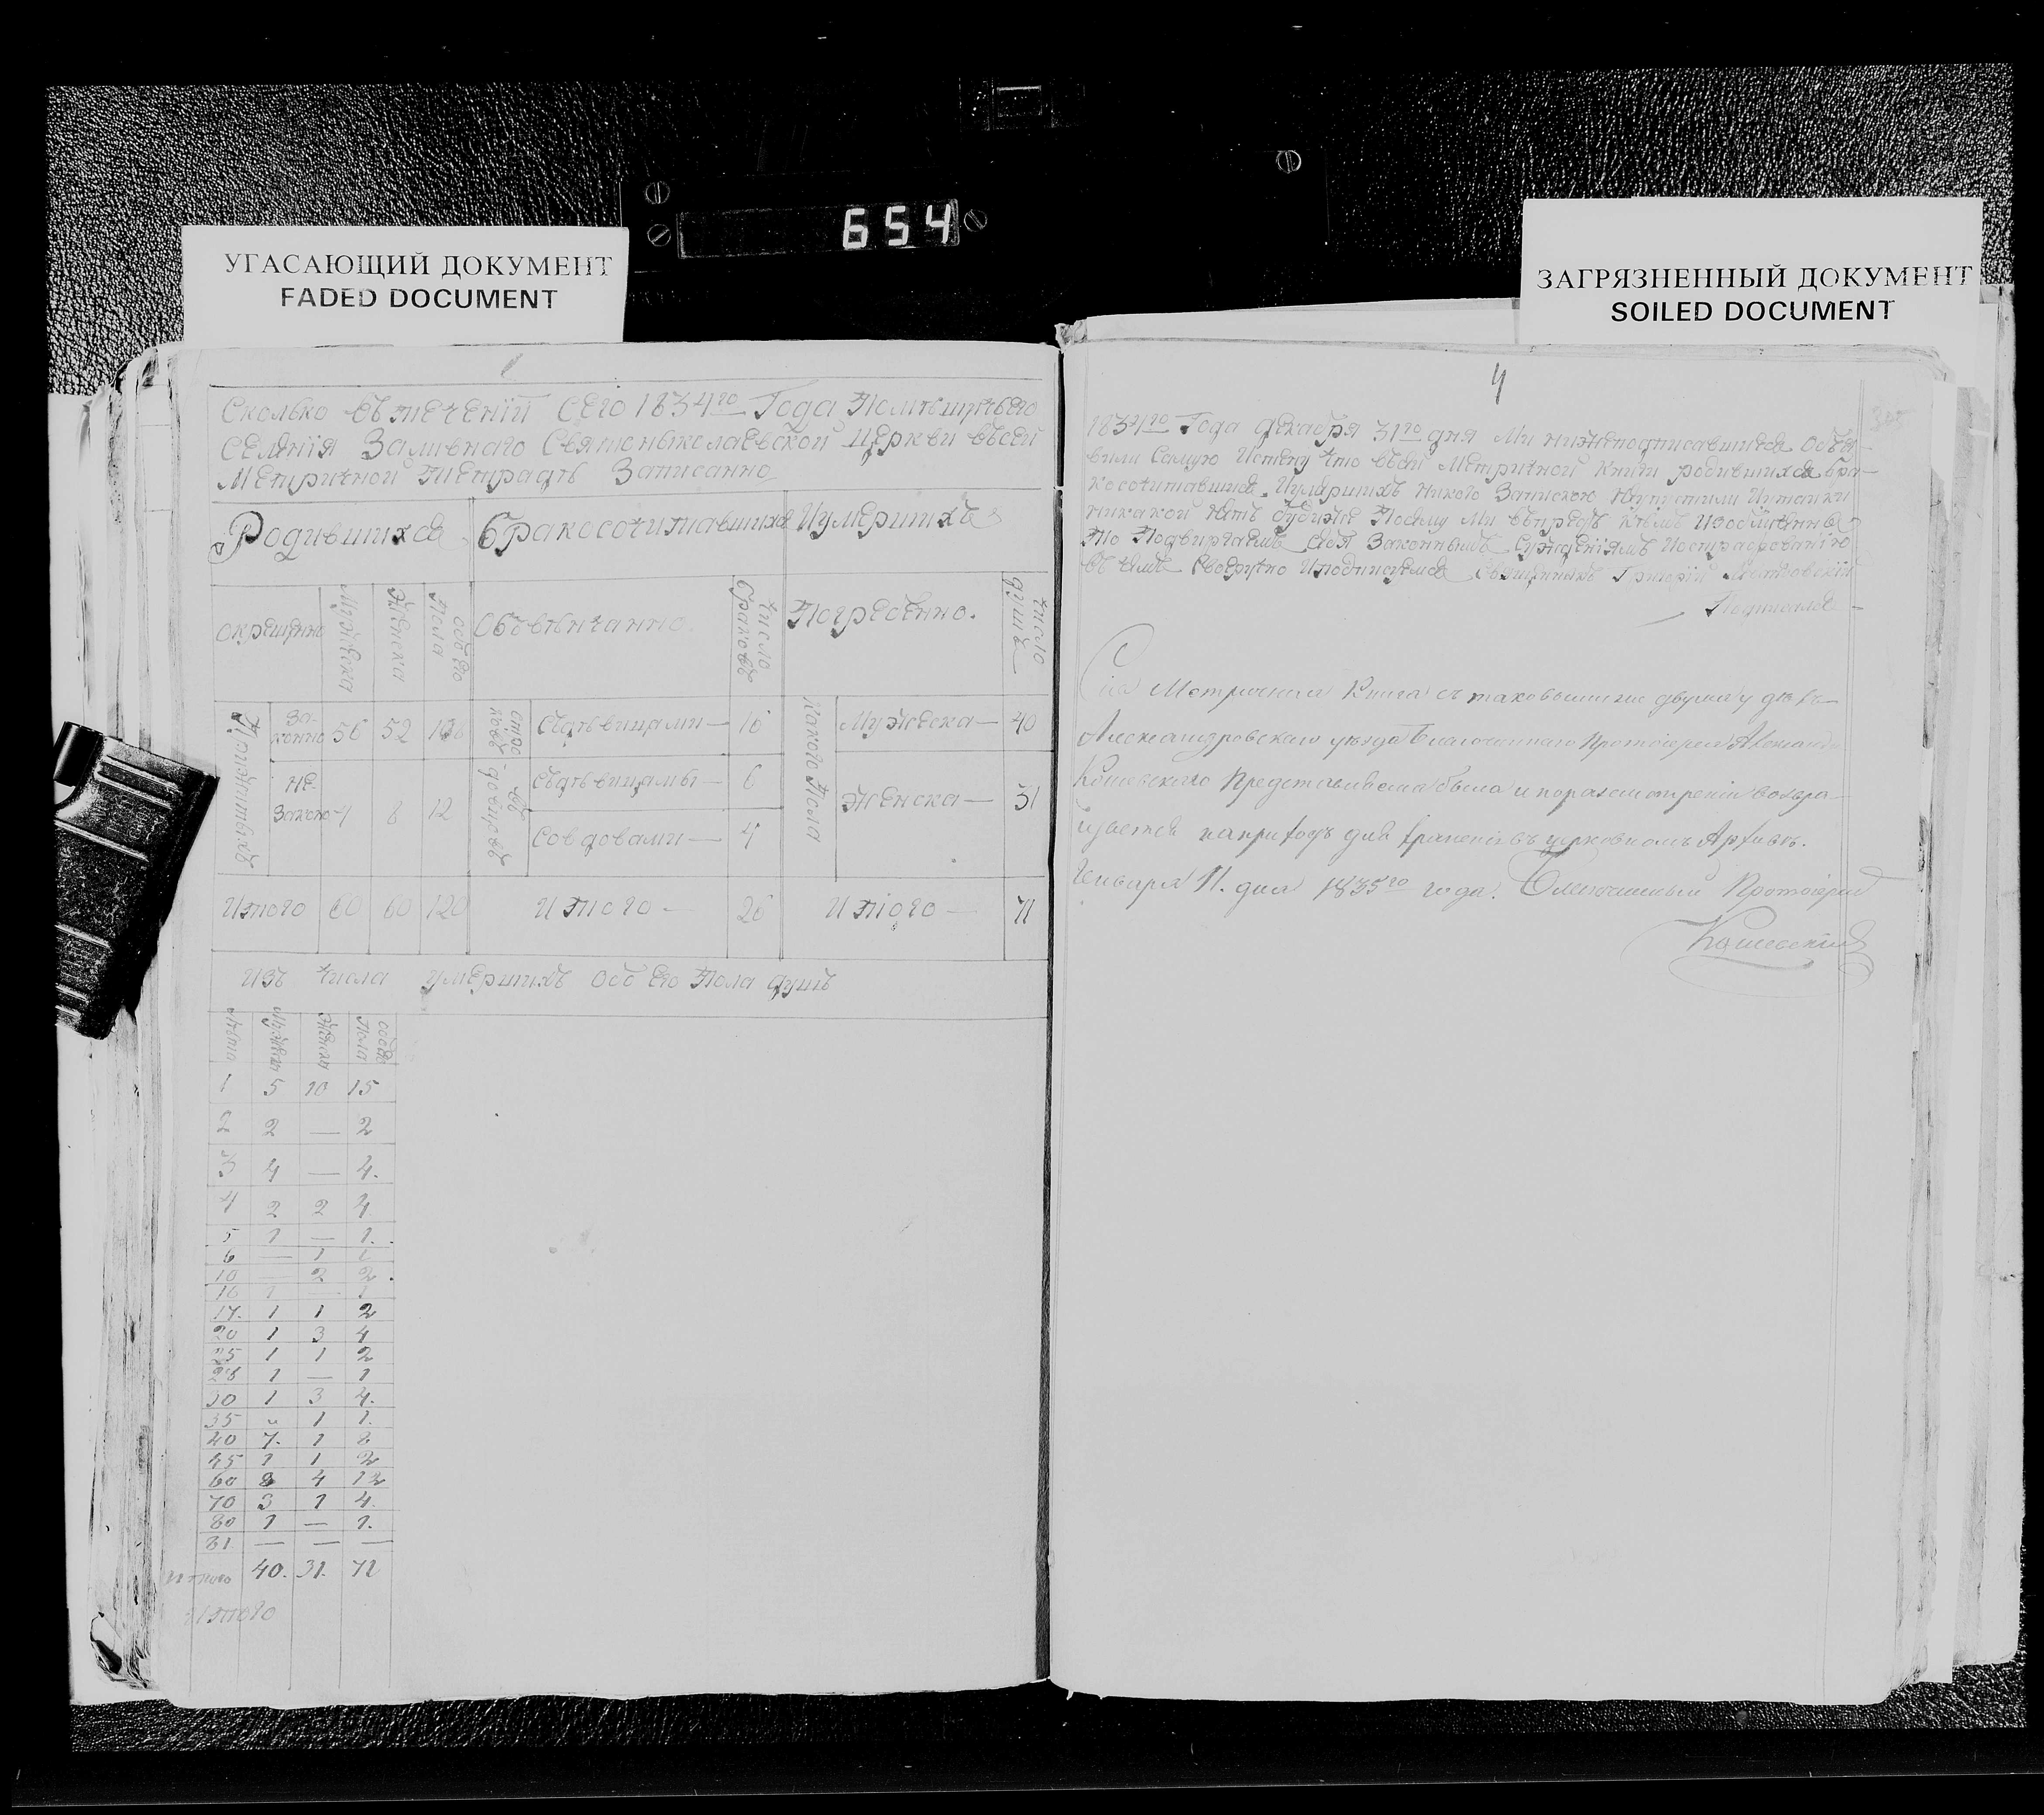 654
УГАСАЮЩИЙ ДОКУМЕНТ
FADED DOCUMENT
ЗАГРЯЗНЕННЫЙ ДОКУМЕНТ
SOILED DOCUMENT
Сколько въ течении Сего 1834го Года
Селения Святониколаевской Церкви въсей
Метричной тетрадѣ Записанно
Родившихся
Бракосочитавшихся
Иумершихъ
окрещенно
Мужеска
Женска
обоего Пола
Объвѣнчанно.
число браковъ
Погребенно.
число душъ
законно 52
съдѣвицами—
какого Пола
Мужеска— 40
не законо 8 12
съдѣвицамы— 6
совдовами— 4
Женска— 31
Итого 60 60 120
Итого— 26
Итого— 71
Изъ числа умершихъ обоего Пола душъ
Лѣта Мужеска Женска обоего Пола
1 5 10 15
2 2 — 2
3 4 — 4.
4 2 2 4
5 1 — 1.
6 — 1 1
10 — 2 2.
16 1 — 1
17. 1 1 2
20 1 3 4
25 1 1 2
28 1 — 1
30 1 3 4.
35 „ 1 1.
40 7. 1 8
45 1 1 2
60 8 4 12
70 3 1 4.
80 1 — 1.
81 — — —
итого 40. 31. 71
Итого
4
1834го Года декабря 31го дня Ми нижеподписавшиеся объя-
вили самую Истену что въсей Метричной книги родившихся бра-
косочитавшихся Иумершихъ никого Запискою
никакой нѣтъ будиже Посему Ми въпредь
то Подвиргаемъ себя Законнымъ Сужденіямъ
въ чемъ своеручно Иподписуемся Священникъ Григорий
Подписался—
Сія Метричная Книга съ таковыми же двумя у дѣлъ
Александровскаго уѣзда Благочиннаго Протоіерея
Кошевскаго Представлена была и по разсмотреніи возвра-
щается на приходъ для храненія въ церковномъ Архивѣ.
Генваря 11. дня 1835го года. Благочинный Протоіерей
Кошевскій